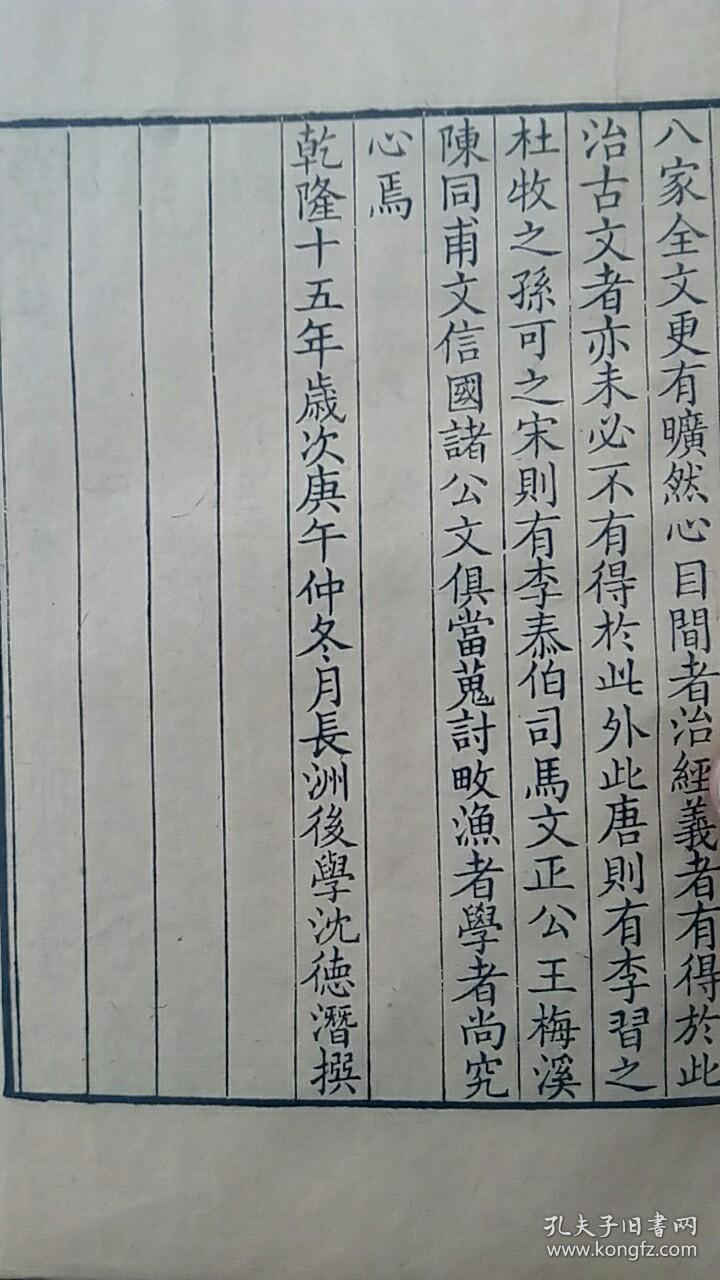 八家全文更有曠然心目間者治經義者有得於此
治古文者亦未必不有得於此外此唐則有李習之
杜牧之孫可之宋則有李泰伯司馬文正公王梅溪
陳同甫文信國諸公文俱當蒐討畋漁者學者尚究
心焉
乾隆十五年歲次庚午仲冬月長洲後學沈德潛撰
孔夫子旧书网
www.kongfz.com